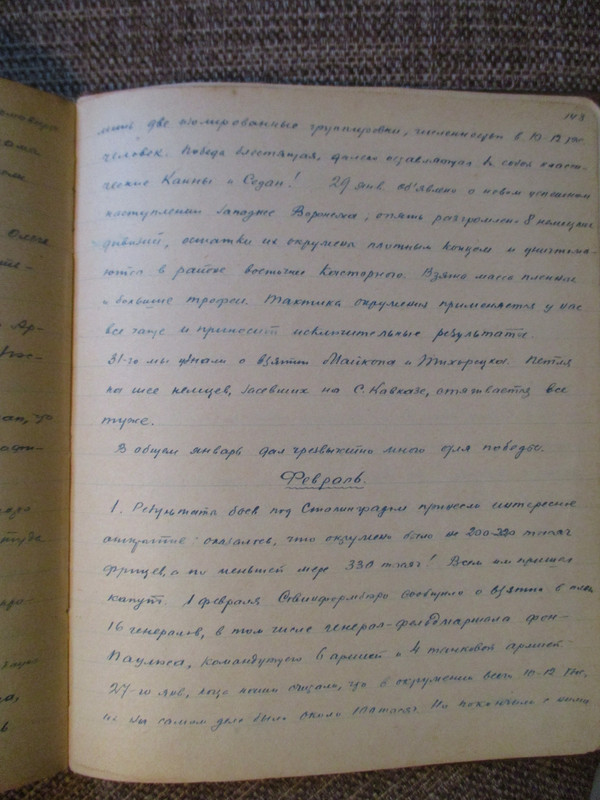 143
мишь две изолированные группировки, численностью в 10-12 тыс.
человек. Победа блестящая, далеко оставляющая за собой класси-
ческие Канны и Седан! 29 янв. объявлено о новом успешном
наступлении западнее Воронежа, опять разгромлено 8 немецких
дивизий, остатки их окружены плотным концем и уничтожа-
ются в районе восточнее Касторного. Взято масса пленных
и большие трофеи. Тактика окружения применяется у нас
все чаще и приносит исключительные результаты.
31-го мы узнали о взятии Майкопа и Тихорецка. Петля
на шее немцев, засевших на С. Кавказе, стягивается все
туже.
В общем январь дал чрезвычайно много для победы.
Февраль.
1. Результаты боев под Сталинградом принесли интересное
открытие: оказалось, что окружено было не 200-220 тысяч
фрицев, а по меньшей мере 330 тысяч! Всем им пришел
капут. 1 февраля Совинформбюро сообщило о взятии в плен
16 генералов, в том числе генерал-фельдмаршала фон-
Паулюса, командующего 6 армией и 4 танковой армией
27-го янв, когда наши считали, что в окружении всего 10-12 тыс,
их на самом деле было около тысяч. Но покончили с ними
Олеге